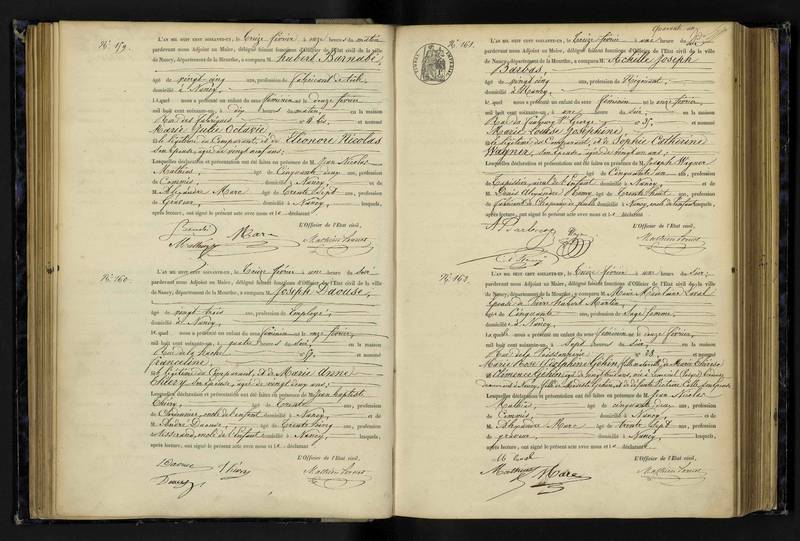 N° 159.
L'AN MIL HUIT CENT SOIXANTE-UN, le Treize février à onze heures du matin
pardevant nous Adjoint au Maire, délégué faisant fonctions d'Officier de l'Etat civil de la ville
de Nancy, département de la Meurthe, a comparu M. Hubert Barnabé,
âgé de vingt cinq ans, profession de fabricant
domicilié à Nancy,
lequel nous a présenté un enfant du sexe féminin né le douze février
mil huit cent soixante-un, à dix heures du matin, en la maison
Rue des Fabriques n° 4 bis, et nommé
Marie Julie Octavie
fille légitime du Comparant, et de Eléonore Nicolas
son épouse, âgée de vingt neuf ans;
Lesquelles déclaration et présentation ont été faites en présence de M. Jean Nicolas
Mathieu, âgé de Cinquante deux ans, profession
de Commis, domicilié à Nancy, et de
M. Alexandre Marc âgé de Trente Sept ans, profession
de Graveur, domicilié à Nancy,
après lecture, ont signé le présent acte avec nous et le déclarant
L'Officier de l'Etat civil,
Marc
N° 160.
L'AN MIL HUIT CENT SOIXANTE-UN, le Treize février à une heure du soir
pardevant nous Adjoint au Maire, délégué faisant fonctions d'Officier de l'Etat civil de la ville
de Nancy, département de la Meurthe, a comparu M. Joseph Daouse,
âgé de vingt trois ans, profession de Employé,
domicilié à Nancy,
lequel nous a présenté un enfant du sexe féminin né le onze février,
mil huit cent soixante-un, à quatre heures du soir, en la maison
Rue de la Hache n° 59, et nommé
Francéline
fille légitime du Comparant, et de Marie Anne
Thiéry son épouse, âgée de vingt deux ans;
Lesquelles déclaration et présentation ont été faites en présence de M. Jean Baptiste
Thiéry, âgé de Trente ans, profession
de Cordonnier, oncle de l'enfant domicilié à Nancy, et de
M. André Daouse âgé de Trente ans, profession
de Tisserand, oncle de l'enfant domicilié à Nancy, lesquels,
après lecture, ont signé le présent acte avec nous et le déclarant
L'Officier de l'Etat civil,
Daouse Thiéry
N° 161.
L'AN MIL HUIT CENT SOIXANTE-UN, le Treize février à une heure du soir
pardevant nous Adjoint au Maire, délégué faisant fonctions d'Officier de l'Etat civil de la ville
de Nancy, département de la Meurthe, a comparu M. Achille Joseph
Barbas,
âgé de vingt cinq ans, profession de Négociant,
domicilié à Nancy,
lequel nous a présenté un enfant du sexe féminin né le onze février,
mil huit cent soixante-un, à une heure du soir, en la maison
Rue du Faubourg St George n° 35, et nommé
Marie Louise Joséphine,
fille légitime du Comparant, et de Sophie Catherine
Wagner son épouse, âgée de vingt un ans;
Lesquelles déclaration et présentation ont été faites en présence de M. Joseph Wagner
âgé de Cinquante un ans, profession
de Tapissier, aïeul de l'enfant domicilié à Nancy, et de
M. Denis Alexandre âgé de Trente huit ans, profession
de fabricant de Chapeaux de paille domicilié à Nancy, oncle de l'enfant lesquels,
après lecture, ont signé le présent acte avec nous et le déclarant
L'Officier de l'Etat civil,
A Barbas
N° 162.
L'AN MIL HUIT CENT SOIXANTE-UN, le Treize février à une heure du soir;
pardevant nous Adjoint au Maire, délégué faisant fonctions d'Officier de l'Etat civil de la ville
de Nancy, département de la Meurthe, a comparu M. Marie Madelaine
épouse de Pierre Hubert Martin,
âgée de Cinquante ans, profession de Sage femme,
domiciliée à Nancy,
laquelle nous a présenté un enfant du sexe féminin né le douze février,
mil huit cent soixante-un, à Sept heures du soir, en la maison
Rue de la Poissonnerie n° 23, et nommé
Marie Rose Joséphine Gehin, fille naturelle de Marie Thérèse
Clémence Gehin, âgée de vingt trois ans,
Lesquelles déclaration et présentation ont été faites en présence de M. Jean Nicolas
Mathieu, âgé de cinquante deux ans, profession
de Commis, domicilié à Nancy, et de
M. Alexandre Marc âgé de Trente Sept ans, profession
de graveur, domicilié à Nancy, lesquels,
après lecture, ont signé le présent acte avec nous et la déclarante
L'Officier de l'Etat civil,
Marc